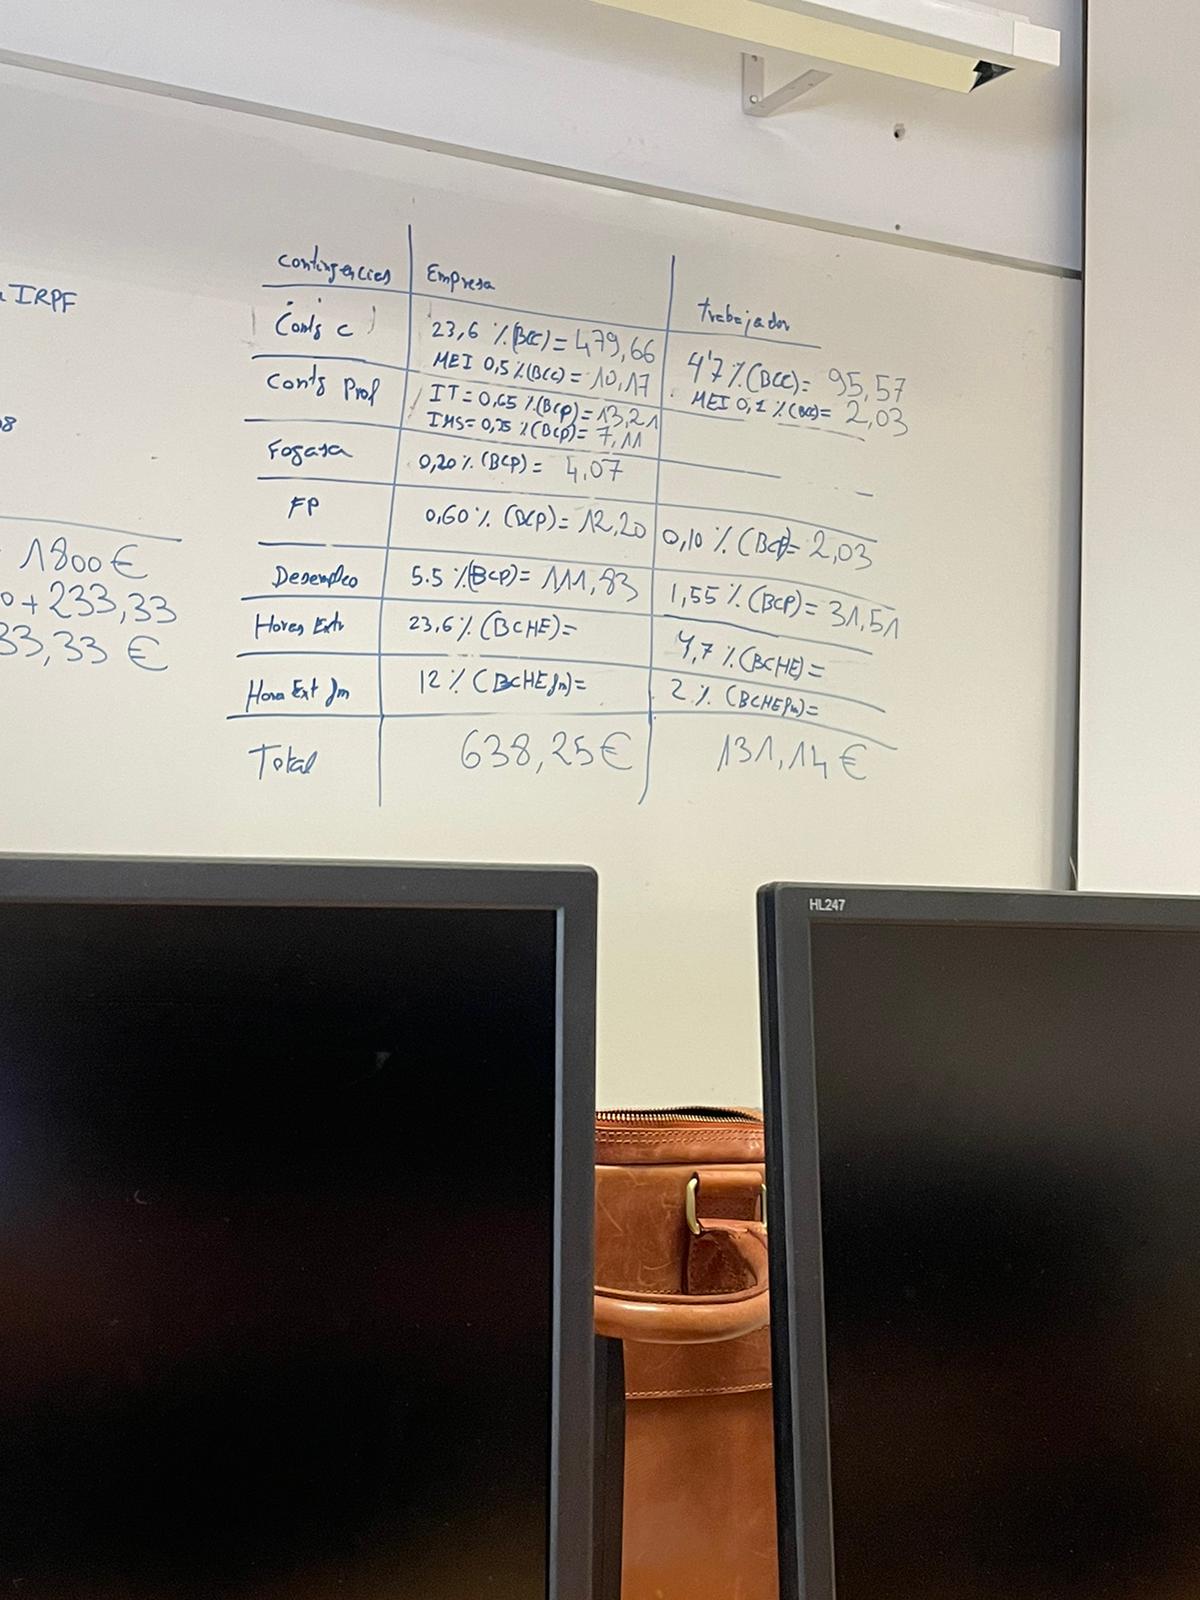 IRPF
1800 €
0 + 233,33
33,33 €
Contingencias Empresa trabajador
Contg c 23,6 % (BCC) = 479,66 4'7 % (BCC) = 95,57
MEI 0,5 % (BCC) = 10,17 MEI 0,1 % (BCC) = 2,03
Contg Prof IT = 0,65 % (BCP) = 13,21
IMS = 0,35 % (BCP) = 7,11
Fogasa 0,20 % (BCP) = 4,07
FP 0,60 % (BCP) = 12,20 0,10 % (BCP) = 2,03
Desempleo 5.5 % (BCP) = 111,83 1,55 % (BCP) = 31,51
Horas Extr 23,6 % (BCHE) = 4,7 % (BCHE) =
Hora Ext fm 12 % (BCHEfm) = 2 % (BCHEfm) =
Total 638,25 € 131,14 €
HL247